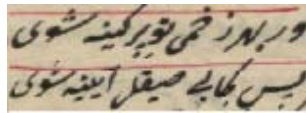 ور بهر زخمی تو پر کینه شوی
پس کجا بی صیقل آیینه شوی